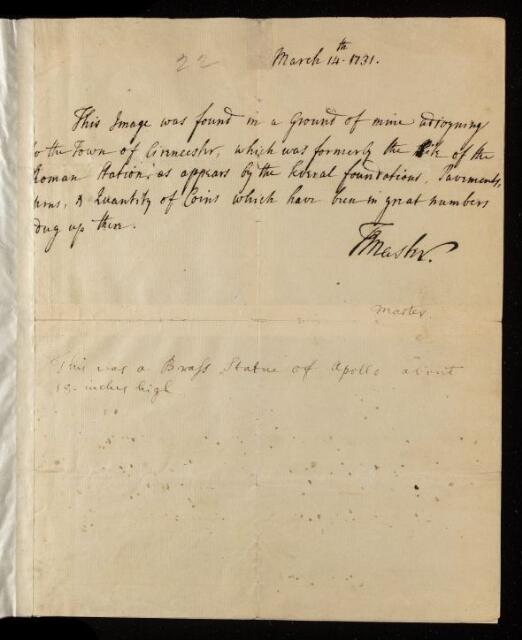 22
March 14th 1731.
This Image was found in a Ground of mine adioyning
to the Town of Cirencester, which was formerly the Site of the
Roman Station, as appears by the several foundations, Pavements,
urns, & Quantity of Coins which have been in great numbers
dug up there.
TMaster.
Master.
This was a Brass Statue of Apollo about
inches high